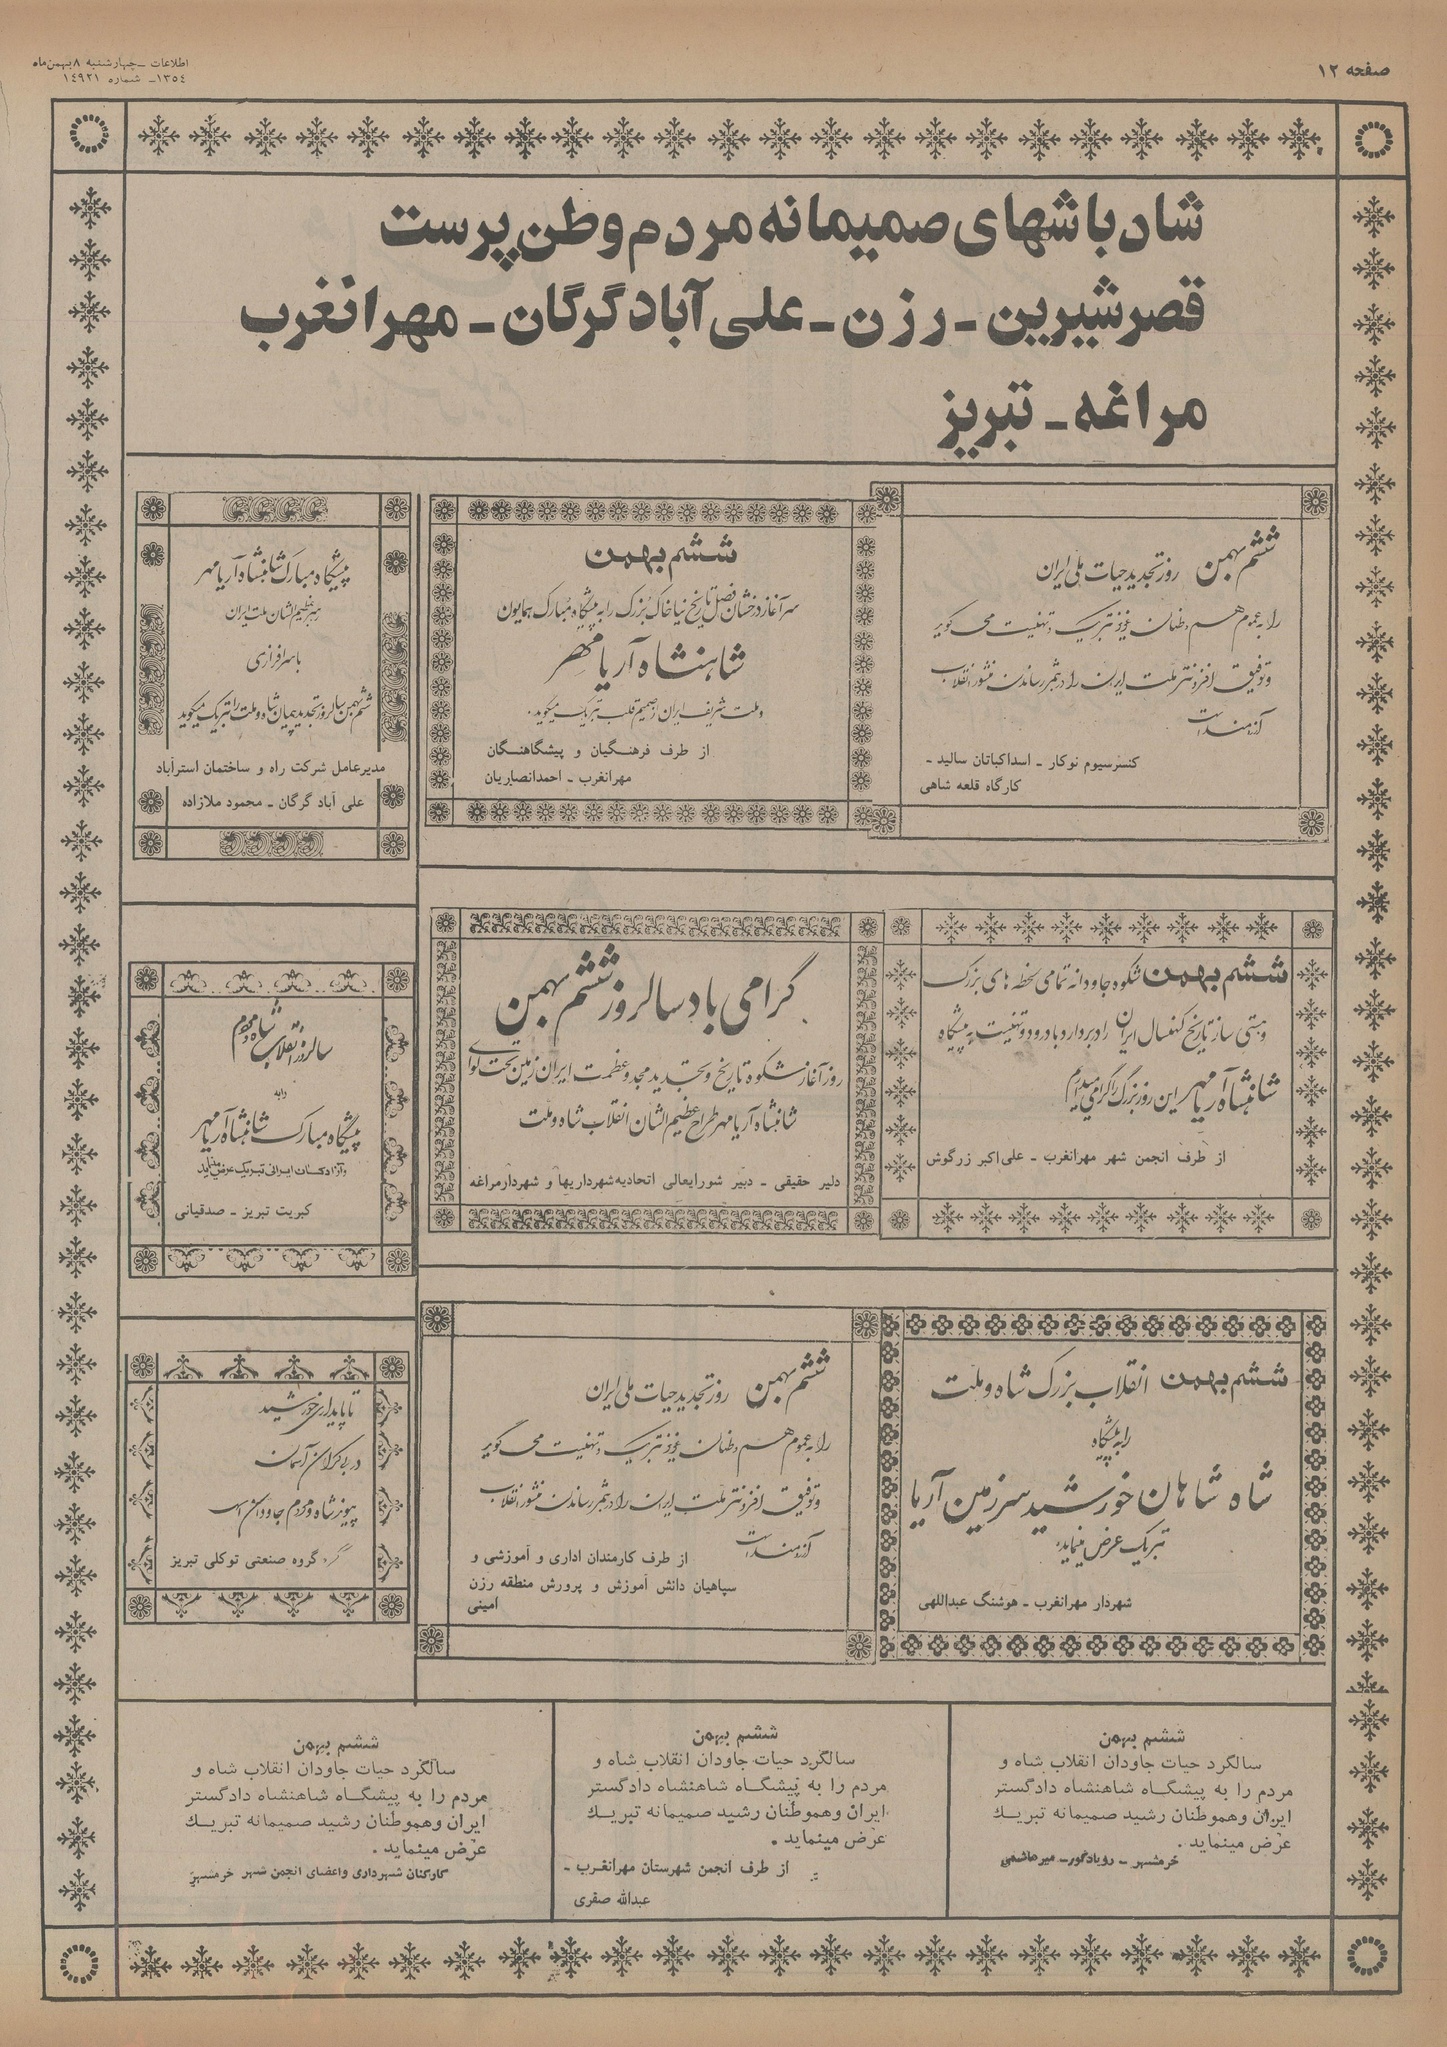 صفحه ۱۲
اطلاعات ـ چهارشنبه ۸ بهمن ماه
۱۳۵٤ـ شماره ۱٤۹۲۱
شادباشهای صمیمانه مردم وطن پرست
قصرشیرین ـ رزن ـ علی آباد گرگان ـ مهرانغرب
مراغه ـ تبریز
ششم بهمن روز تجدید حیات ملی ایران
را به عموم هم وطنان عزیز تبریک و تهنیت می گوید
و توفیق افزونتر ملت ایران را در بثمر رساندن منشور انقلاب
آرزومند است
کنسرسیوم نوکار ـ اسداکباتان سالید ـ
کارگاه قلعه شاهی
ششم بهمن
سرآغاز درخشان فصل تاریخ نیاخاک بزرگ را به پیشگاه مبارک همایون
شاهنشاه آریامهر
و ملت شریف ایران از صمیم قلب تبریک میگوید.
از طرف فرهنگیان و پیشگاهنگان
مهرانغرب ـ احمدانصاریان
پیشگاه مبارک شاهنشاه آریامهر
رهبر عظیم الشان ملت ایران
با سرافرازی
ششم بهمن سالروز تجدید پیمان شاه و ملت را تبریک میگوید
مدیرعامل شرکت راه و ساختمان استرآباد
علی آباد گرگان ـ محمود ملازاده
ششم بهمن شکوه جاودانه تمامی لحظه های بزرگ
و هستی ساز تاریخ کهنسال ایران را دربردارد با درود و تهنیت به پیشگاه
شاهنشاه آریامهر این روز بزرگ را گرامی میداریم
از طرف انجمن شهر مهرانغرب ـ علی اکبر زرگوش
گرامی باد سالروز ششم بهمن
روز آغاز شکوه تاریخ و تجدید مجد و عظمت ایران زمین تحت لوای
شاهنشاه آریامهر طراح عظیم الشان انقلاب شاه و ملت
دلیر حقیقی ـ دبیر شورایعالی اتحادیه شهرداریها و شهردارمراغه
سالروز انقلاب شاه و مردم
را به
پیشگاه مبارک شاهنشاه آریامهر
و آزادگان ایرانی تبریک عرض مینماید
کبریت تبریز ـ صدقیانی
ششم بهمن انقلاب بزرگ شاه و ملت
را به پیشگاه
شاه شاهان خورشید سرزمین آریا
تبریک عرض مینماید.
شهردار مهرانغرب ـ هوشنگ عبداللهی
ششم بهمن روز تجدید حیات ملی ایران
را به عموم هم وطنان عزیز تبریک و تهنیت می گوید
و توفیق افزونتر ملت ایران را در بثمر رساندن منشور انقلاب
آرزومند است
از طرف کارمندان اداری و آموزشی و
سپاهیان دانش آموزش و پرورش منطقه رزن
امینی
تا پایداری خورشید
در بی کران آسمان
پیوند شاه و مردم جاودان است
گروه صنعتی توکلی تبریز
ششم بهمن
سالگرد حیات جاودان انقلاب شاه و
مردم را به پیشگاه شاهنشاه دادگستر
ایران وهموطنان رشید صمیمانه تبریك
عرض مینماید .
خرمشهر ـ رویادگور ـ میرهاشمی
ششم بهمن
سالگرد حیات جاودان انقلاب شاه و
مردم را به پیشگاه شاهنشاه دادگستر
ایران وهموطنان رشید صمیمانه تبریك
عرض مینماید .
از طرف انجمن شهرستان مهرانغرب ـ
عبدالله صفری
ششم بهمن
سالگرد حیات جاودان انقلاب شاه و
مردم را به پیشگاه شاهنشاه دادگستر
ایران وهموطنان رشید صمیمانه تبریك
عرض مینماید .
کارکنان شهرداری واعضای انجمن شهر خرمشهر